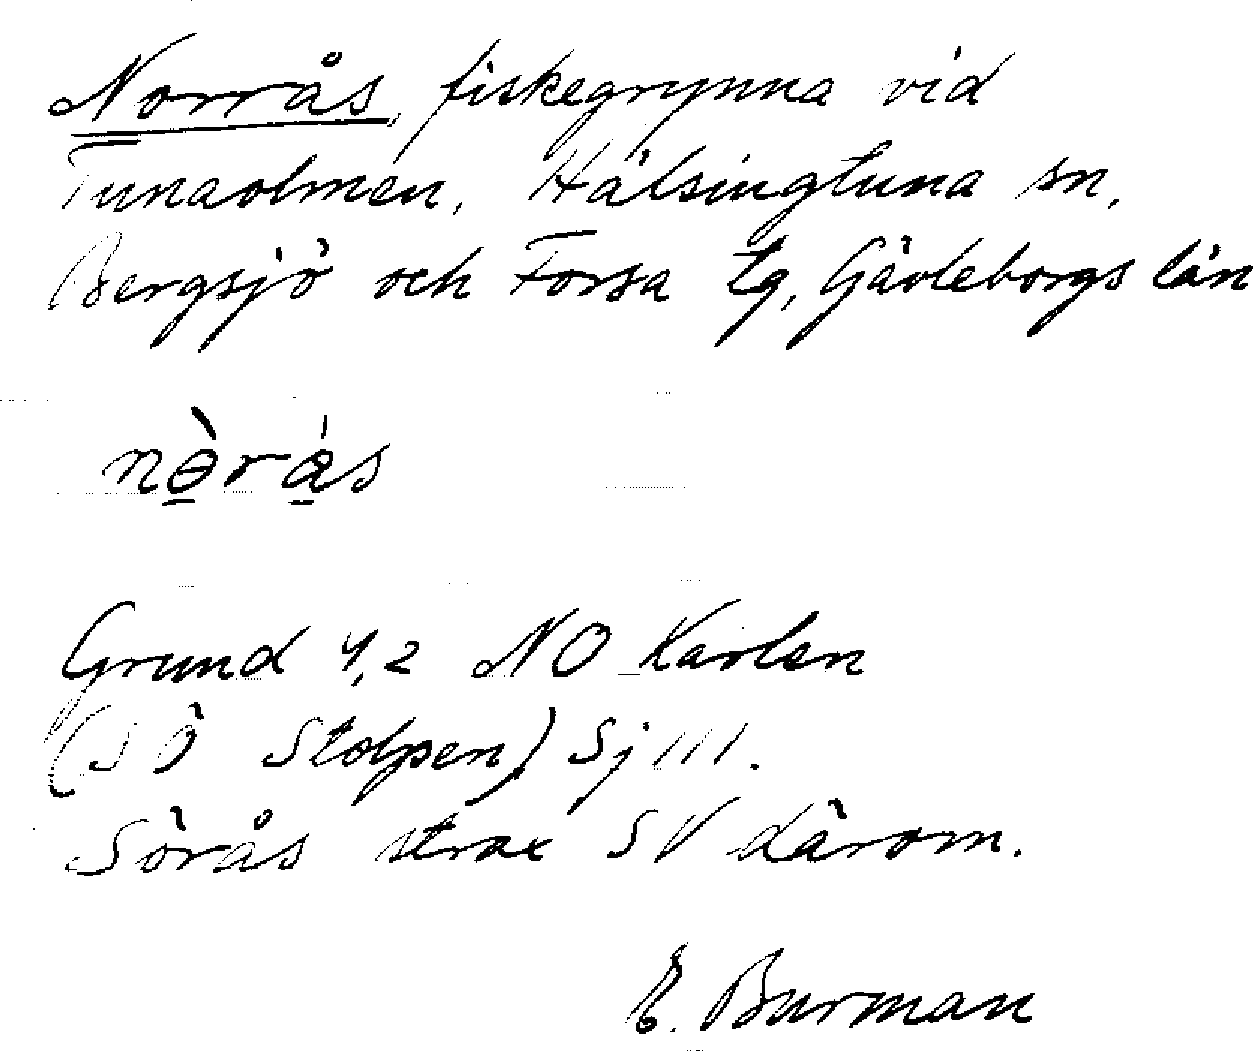 Norrås, fiskegrynna vid
Tunaolmen, Hälsingtuna sn,
Bergsjö och Forsa tg, Gävleborgs län
nɵ̠̀rá̠s
Grund 4,2 NO Karlen
(SÖ Stolpen) Sj 111.
Sörås strax SV därom.
E. Burman